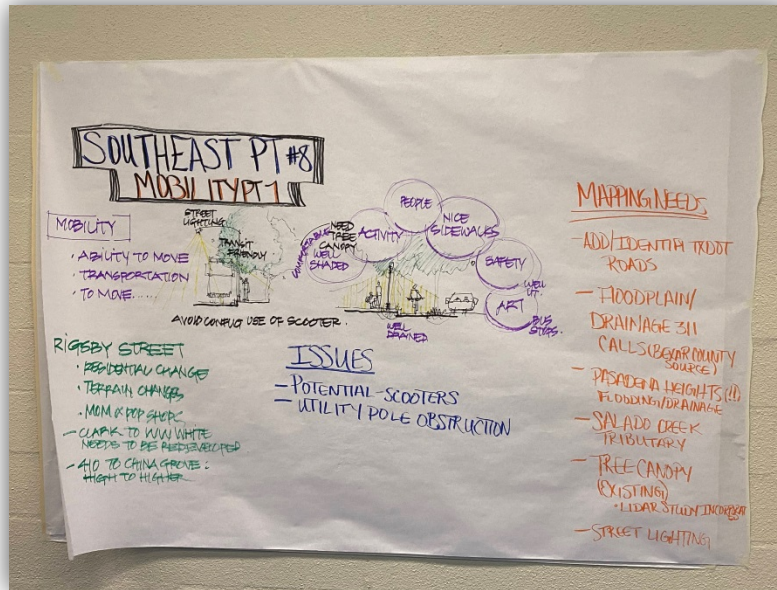 SOUTHEAST PT #8
MOBILITY PT 1
MOBILITY
· ABILITY TO MOVE
· TRANSPORTATION
· TO MOVE.....
STREET
LIGHTING
TRANSIT
FRIENDLY
AVOID CONFLIC USE OF SCOOTER.
COMFORTABLE
NEED
TREE
CANOPY
WELL
SHADED
ACTIVITY
PEOPLE
NICE
SIDEWALKS
SAFETY
WELL
LIT
ART
BUS
STOPS.
WELL
DRAINED
RIGSBY STREET
· RESIDENTIAL CHANGE
· TERRAIN CHANGES
· MOM & POP SHOPS
- CLARK TO WW WHITE
NEEDS TO BE REDEVELOPED
- 410 TO CHINA GROVE:
HIGH TO HIGHER
ISSUES
- POTENTIAL-SCOOTERS
- UTILITY POLE OBSTRUCTION
MAPPING NEEDS
- ADD/IDENTIFY TXDOT
ROADS
- FLOODPLAIN/
DRAINAGE 311
CALLS (BEXAR COUNTY
SOURCE)
- PASADENA HEIGHTS (!!)
FLOODING/DRAINAGE
- SALADO CREEK
TRIBUTARY
- TREE CANOPY
(EXISTING)
· LIDAR STUDY
- STREET LIGHTING